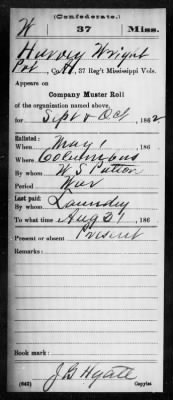 (Confederate.)
W 37 Miss.
Harvey Wright
Pvt, Co. H, 37 Reg't Mississippi Vols.
Appears on
Company Muster Roll
of the organization named above,
for Sept & Oct, 1862
Enlisted:
When May 1, 186
Where Columbus
By whom W. S. Patton
Period War
Last paid:
By whom Laundry
To what time Aug 31, 186
Present or absent Present
Remarks:
Book mark:
J B Hyatt
(642) Copyist.